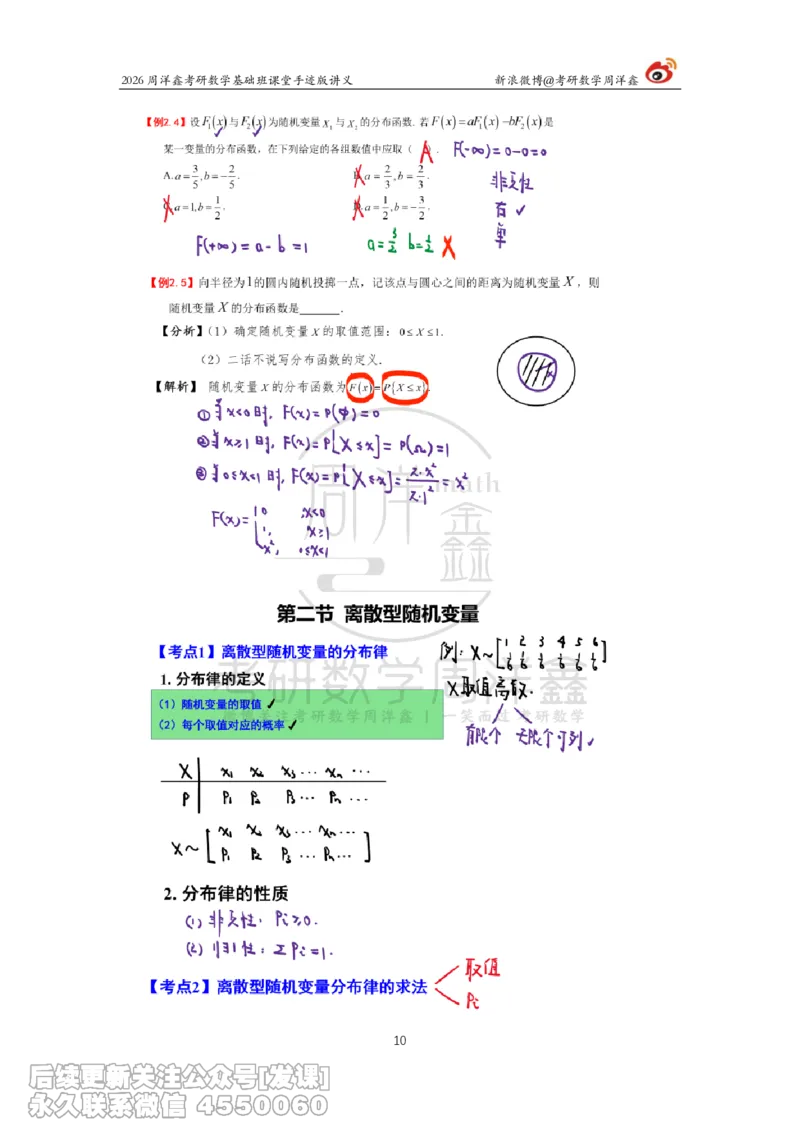 2026周洋鑫考研数学基础班课堂手迹版讲义 新浪微博@考研数学周洋鑫
【例2.4】设F₁(x)与F₂(x)为随机变量X₁与X₂的分布函数.若F(x)=aF₁(x)-bF₂(x)是
某一变量的分布函数，在下列给定的各组数值中应取（ A ）. F(-∞)=0-0=0
A. a=3/5, b=-2/5. B. a=2/3, b=2/3. 非负性
C. a=1, b=1/2. D. a=1/2, b=-3/2. 右 ✓
单
F(+∞)=a-b=1 a=3/2 b=1/2 X
【例2.5】向半径为1的圆内随机投掷一点，记该点与圆心之间的距离为随机变量X，则
随机变量X的分布函数是_______.
【分析】（1）确定随机变量X的取值范围：0≤X≤1.
（2）二话不说写分布函数的定义.
【解析】 随机变量X的分布函数为F(x)=P{X≤x}.
①当x<0时, F(x)=P(∅)=0
②当x≥1时, F(x)=P{X≤x}=P(Ω)=1
③当0≤x<1时, F(x)=P{X≤x}=π·x²/π·1²=x²
F(x)={0, x<0
1, x≥1
x², 0≤x<1
周洋鑫 math
第二节 离散型随机变量
【考点1】离散型随机变量的分布律
例: X~[1 2 3 4 5 6
1/6 1/6 1/6 1/6 1/6 1/6]
考研数学周洋鑫
1. 分布律的定义
X取值离散.
（1）随机变量的取值 ✓
（2）每个取值对应的概率 ✓
有限个 无限个可列 ✓
X x₁ x₂ x₃ ··· xₙ ···
P P₁ P₂ P₃ ··· Pₙ ···
X~[x₁ x₂ x₃ ··· xₙ ···
P₁ P₂ P₃ ··· Pₙ ···]
2. 分布律的性质
(1) 非负性: Pi≥0.
(2) 归1性: ΣPi=1.
【考点2】离散型随机变量分布律的求法
取值
Pi
10
后续更新关注公众号[发课]
永久联系微信 4550060